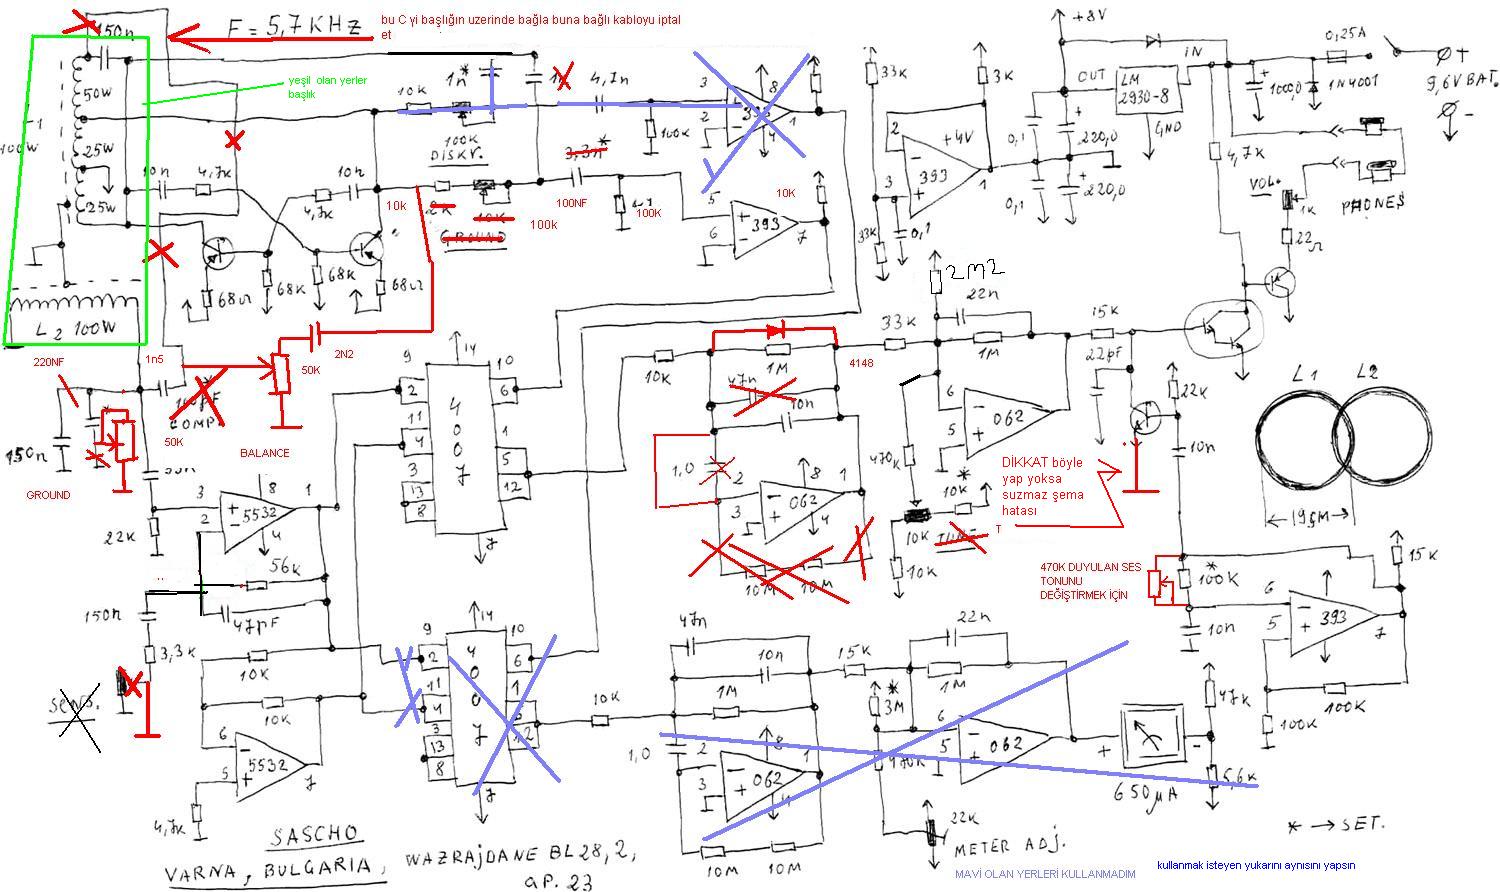 F = 5,7 KHZ
bu C yi başlığın uzerinde bağla buna bağlı kabloyu iptal
et
yeşil olan yerler
başlık
150n
50W
25W
25W
100W
L2 100W
10n
4,7k
4,7k
10n
68Ω
68K
68K
68Ω
10K
100K
DISKV.
1n*
4,7n
100K
3
2
8
393
1
4
10k
2k
10K
GROUND
100k
3,3n*
100NF
100K
5
6
393
7
10K
33K
33K
3K
0,1
2
3
+4V
393
1
+8V
OUT
LM
2930-8
IN
GND
0,1
220,0
0,1
220,0
0,25A
1000,0
1N4001
9,6V BAT.
+
-
4,7K
VOL.
1K
22Ω
PHONES
220NF
1n5
COMP.
50K
2N2
50K
BALANCE
150n
GROUND
22K
3
2
8
5532
1
4
56K
47pF
150n
3,3K
SENS.
10K
10K
6
5
5532
7
4,7K
9
14
10
2
6
11
4
4007
1
5
3
13
8
12
7
10K
1M
4148
47n
10n
1,0
2
3
8
062
1
4
10M
10M
33K
2M2
22n
1M
6
5
062
470K
10K
10K*
10K
TUNE
T
15K
22pF
22K
10n
DİKKAT böyle
yap yoksa
suzmaz şema
hatası
L1
L2
19CM
470K DUYULAN SES
TONUNU
DEĞİŞTİRMEK İÇİN
100K*
10n
6
5
393
7
15K
100K
100K
9
14
10
2
6
11
4
4007
1
3
13
8
12
7
10K
47n
10n
1M
1,0
2
3
8
062
1
4
10M
10M
15K
22n
1M
3M*
6
5
062
470K
22K
METER ADJ.
+
-
650µA
47K
5,6K
* → SET.
SASCHO
VARNA, BULGARIA, WAZRAJDANE BL 28, 2,
AP. 23
MAVİ OLAN YERLERİ KULLANMADIM
kullanmak isteyen yukarını aynısını yapsın